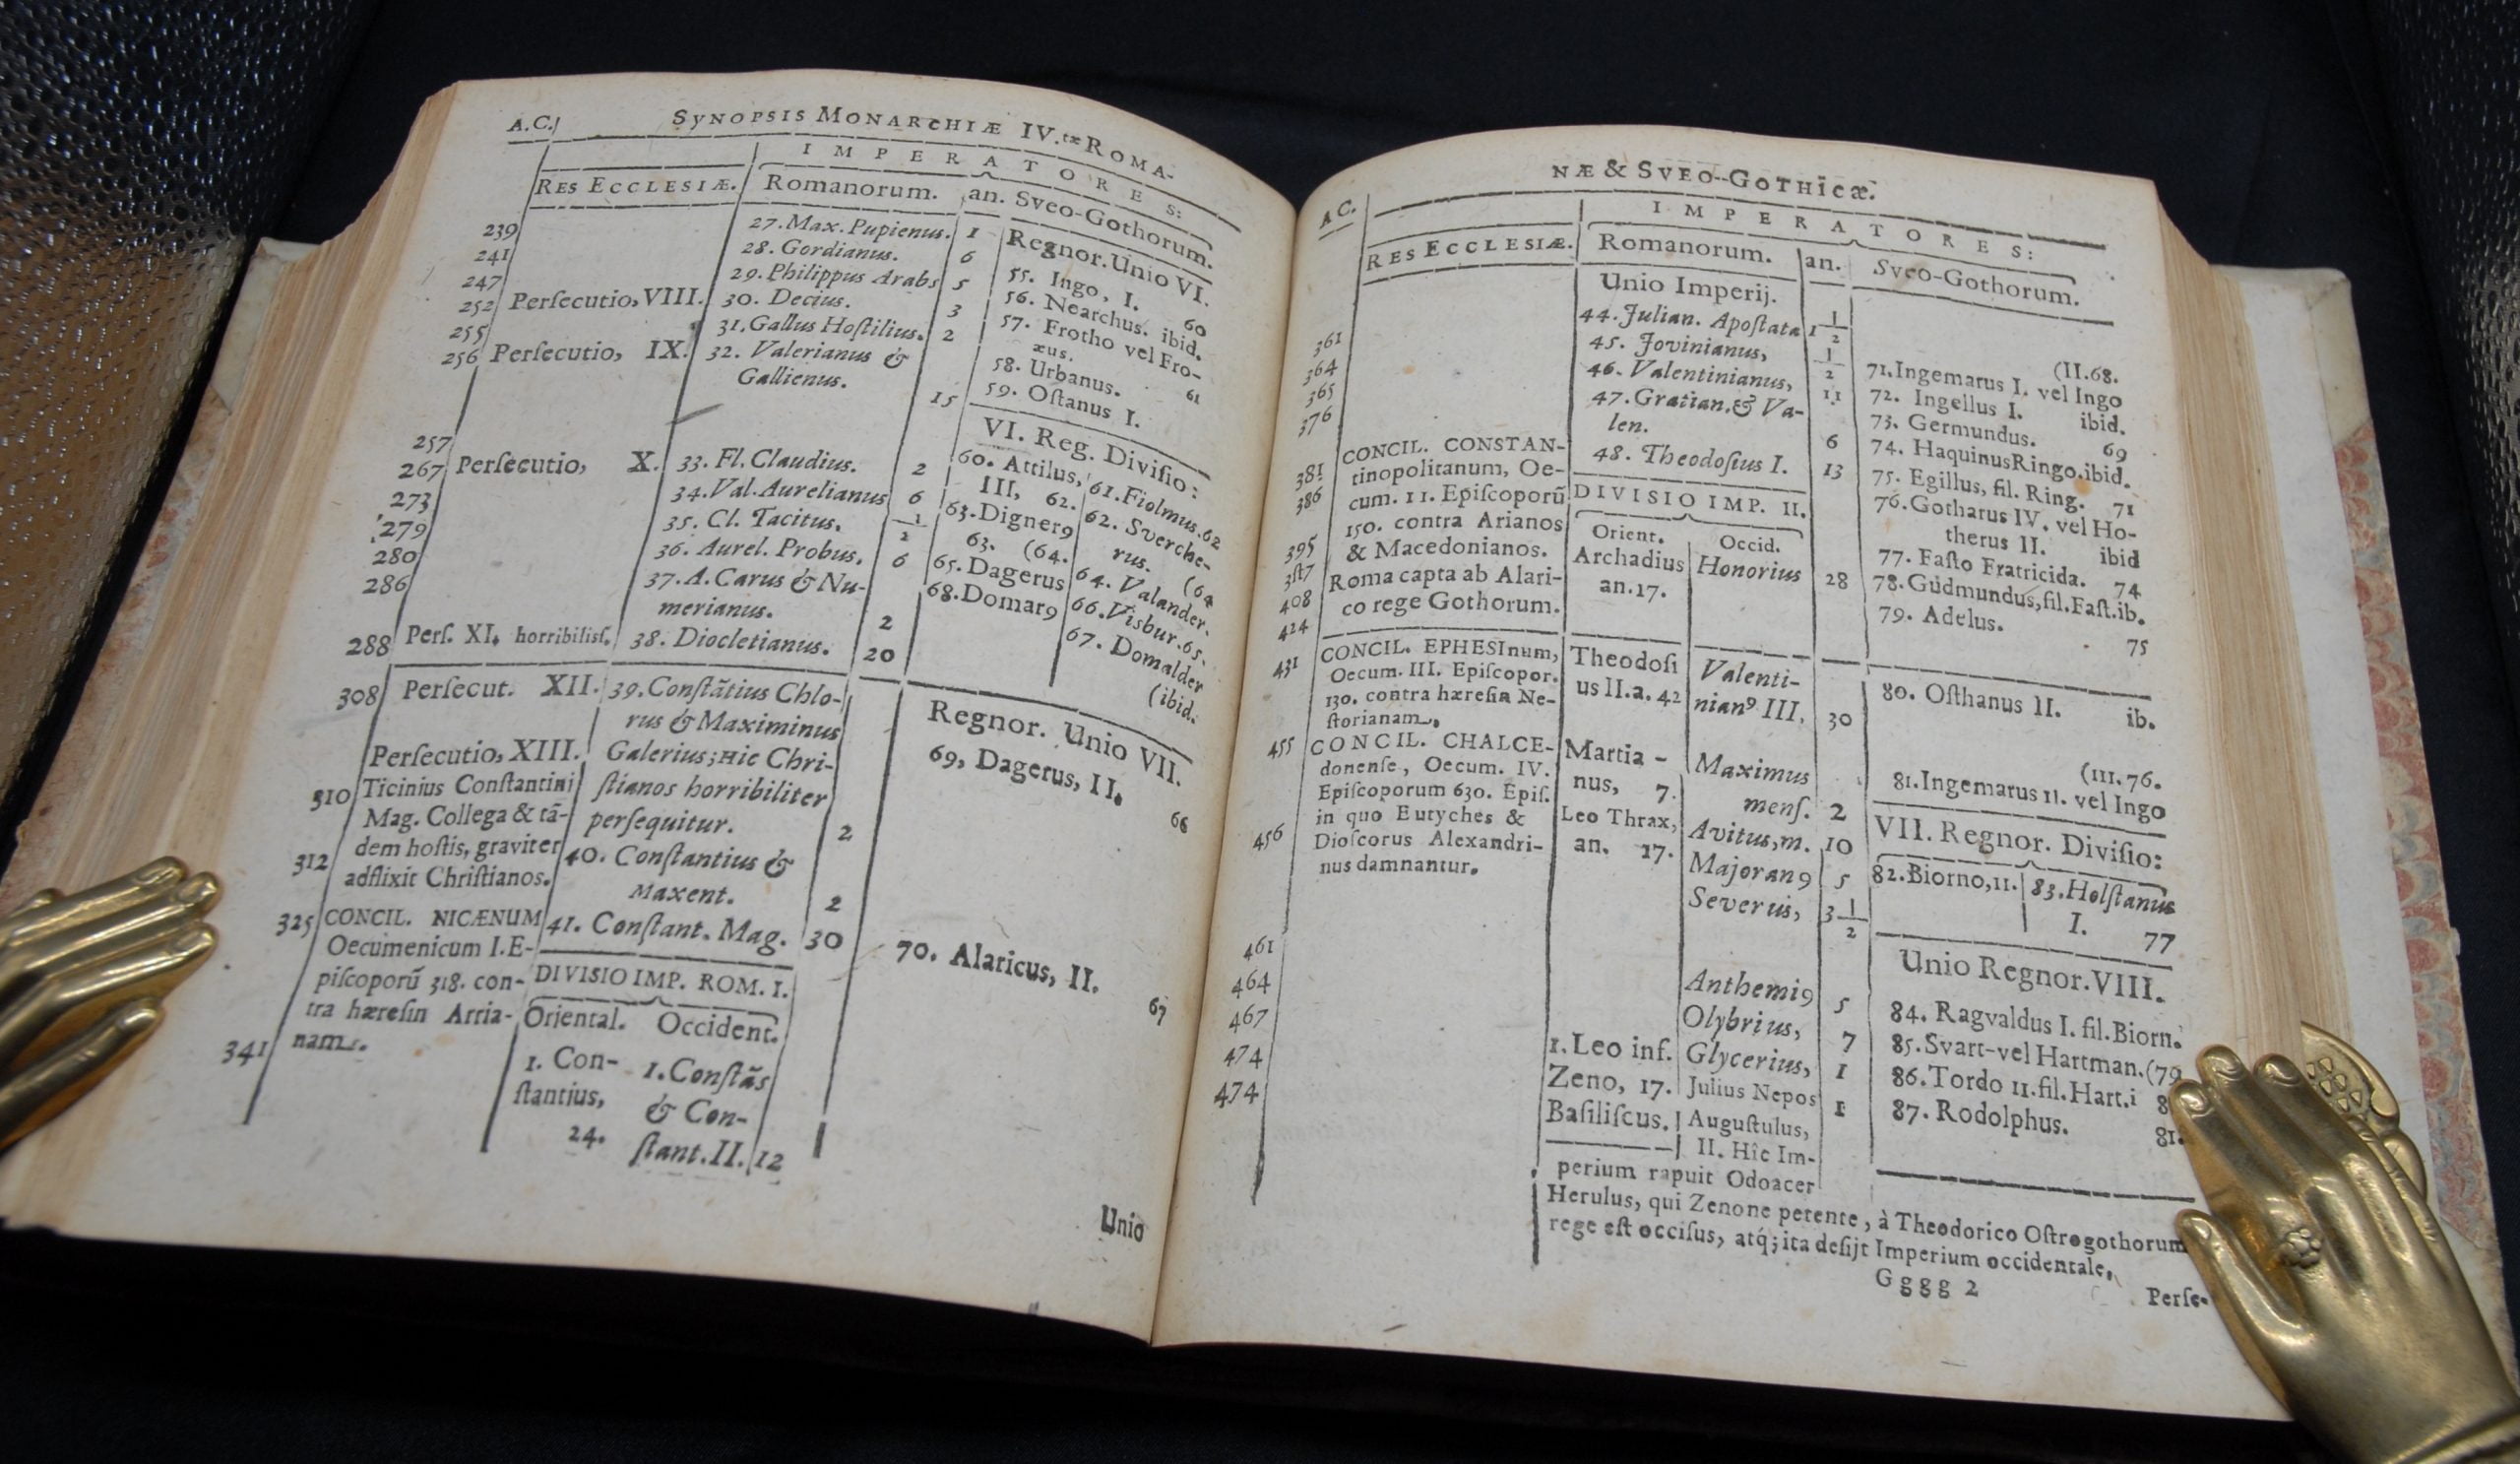 A.C.
SYNOPSIS MONARCHIÆ IV.tæ ROMA-
IMPERATORES:
RES ECCLESIÆ. Romanorum. an. Sveo-Gothorum.
239 27. Max. Pupienus. 1 Regnor. Unio VI.
241 28. Gordianus. 6 55. Ingo, I. 60
247 29. Philippus Arabs 5 56. Nearchus. ibid.
252 Perſecutio, VIII. 30. Decius. 3 57. Frotho vel Fro-
255 31. Gallus Hoſtilius. 2 æus. 61
256 Perſecutio, IX. 32. Valerianus & 58. Urbanus.
Gallienus. 15 59. Oſtanus I.
VI. Reg. Diviſio:
257
267 Perſecutio, X. 33. Fl. Claudius. 2 60. Attilus, 61. Fiolmus. 62
273 34. Val. Aurelianus 6 III, 62. 62. Sverche-
279 35. Cl. Tacitus. 1/2 63. Digner9 rus. (64
280 36. Aurel. Probus. 6 63. (64. 64. Valander.
286 37. A. Carus & Nu- 65. Dagerus 66. Visbur. 65.
merianus. 2 68. Domar9 67. Domalder
288 Perſ. XI. horribiliſſ. 38. Diocletianus. 20 (ibid.
308 Perſecut. XII. 39. Conſtãtius Chlo-
rus & Maximinus Regnor. Unio VII.
Perſecutio, XIII. Galerius; Hic Chri- 69, Dagerus, II. 66
310 Ticinius Conſtantini ſtianos horribiliter
Mag. Collega & tã- perſequitur. 2
312 dem hoſtis, graviter 40. Conſtantius &
adflixit Chriſtianos. Maxent. 2
325 CONCIL. NICÆNUM 41. Conſtant. Mag. 30 70. Alaricus, II. 67
Oecumenicum I. E- DIVISIO IMP. ROM. I.
piſcoporũ 318. con- Oriental. Occident.
tra hæreſin Arria-
341 nam. 1. Con- 1. Conſtãs
ſtantius, & Con-
24. ſtant. II. 12
Unio
NÆ & SVEO-GOTHICÆ.
A C.
IMPERATORES:
RES ECCLESIÆ. Romanorum. an. Sveo-Gothorum.
Unio Imperij.
361 44. Julian. Apoſtata 1 1/2
364 45. Jovinianus, 1/2 (II. 68.
365 46. Valentinianus, 11 71. Ingemarus I. vel Ingo
376 47. Gratian. & Va- 72. Ingellus I. ibid.
len. 6 73. Germundus. 69
CONCIL. CONSTAN- 48. Theodoſius I. 13 74. Haquinus Ringo. ibid.
381 tinopolitanum, Oe- 75. Egillus, fil. Ring. 71
386 cum. II. Epiſcoporũ DIVISIO IMP. II. 76. Gotharus IV. vel Ho-
150. contra Arianos Orient. Occid. therus II. ibid
395 & Macedonianos. Archadius Honorius 28 77. Faſto Fratricida. 74
Roma capta ab Alari- an. 17. 78. Gudmundus, fil. Faſt. ib.
408 co rege Gothorum. 79. Adelus. 75
424
431 CONCIL. EPHESInum, Theodoſi Valenti- 80. Oſthanus II. ib.
Oecum. III. Epiſcopor. us II. a. 42 nian9 III, 30
130. contra hæreſin Ne-
ſtorianam.
455 CONCIL. CHALCE- Martia- Maximus (III. 76.
donenſe, Oecum. IV. nus, 7. menſ. 2 81. Ingemarus II. vel Ingo
Epiſcoporum 630. Epiſ. Leo Thrax, Avitus, m. 10 VII. Regnor. Diviſio:
in quo Eutyches & an. 17. Majoran9 5 82. Biorno, II. 83. Holſtanus
456 Dioſcorus Alexandri- Severus, 3 1/2 I. 77
nus damnantur.
461 Unio Regnor. VIII.
464 Anthemi9 5 84. Ragvaldus I. fil. Biorn.
467 Olybrius, 7 85. Svart- vel Hartman. (79
474 1. Leo inf. Glycerius, 1 86. Tordo II. fil. Hart. i
474 Zeno, 17. Julius Nepos 1 87. Rodolphus. 81.
Baſiliſcus. Auguſtulus,
II. Hîc Im-
perium rapuit Odoacer
Herulus, qui Zenone petente, à Theodorico Oſtrogothorum
rege eſt occiſus, atq; ita deſijt Imperium occidentale.
Gggg 2
Perſe-